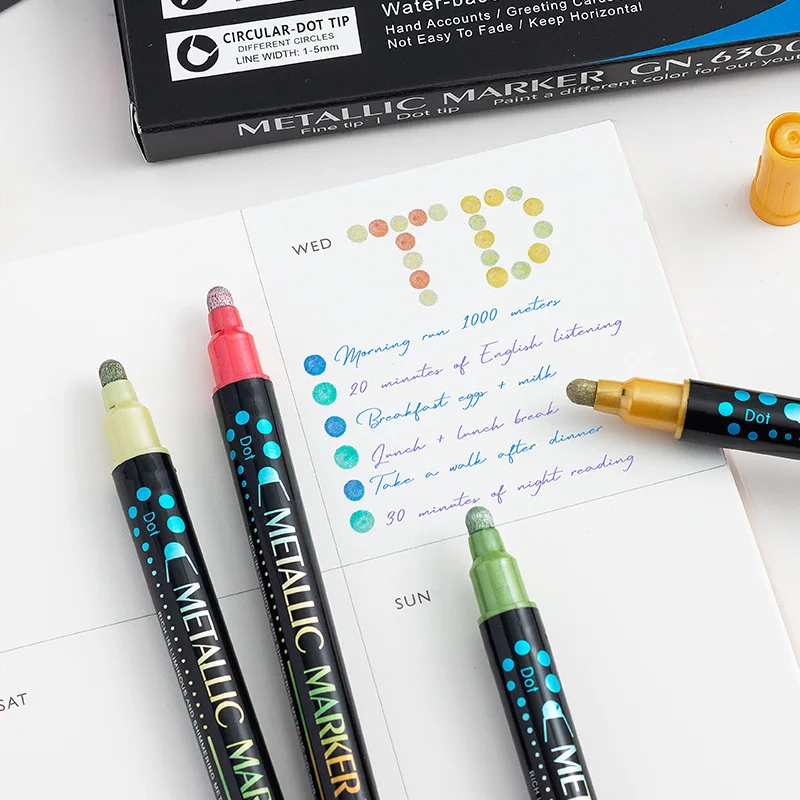 Water-bas
CIRCULAR-DOT TIP
DIFFERENT CIRCLES
LINE WIDTH: 1-5mm
Hand Accounts / Greeting Cards
Not Easy To Fade / Keep Horizontal
METALLIC MARKER GN.6300
Fine tip | Dot tip Paint a different color for our yout
WED
TD
Morning run 1000 meters
20 minutes of English listening
Breakfast eggs + milk
Lunch + lunch break
Take a walk after dinner
30 minutes of night reading
SUN
SAT
Dot
METALLIC MAR
Dot
METALLIC MARKER
Dot
ME
Dot